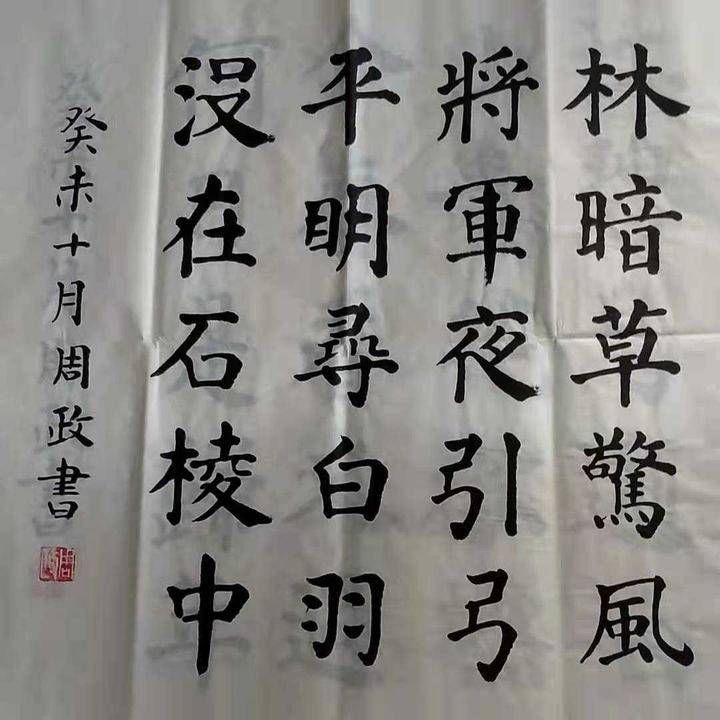 林暗草驚風
將軍夜引弓
平明尋白羽
没在石棱中
癸未十月周政書